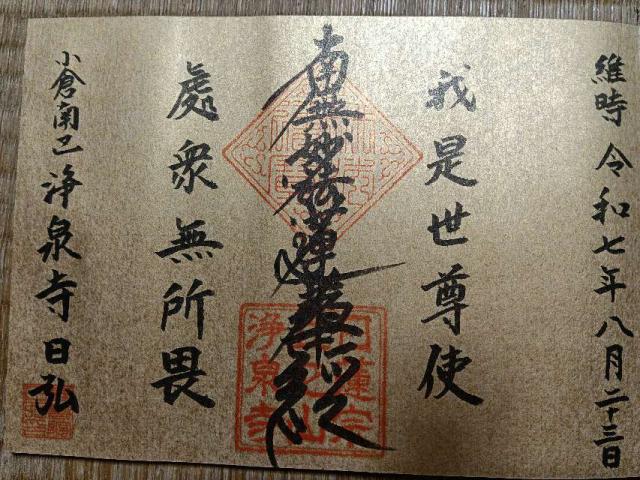 維時 令和七年八月二十三日
我是世尊使
南無妙法蓮華経
處衆無所畏
小倉南乙 浄泉寺 日弘
日蓮宗
浄泉寺